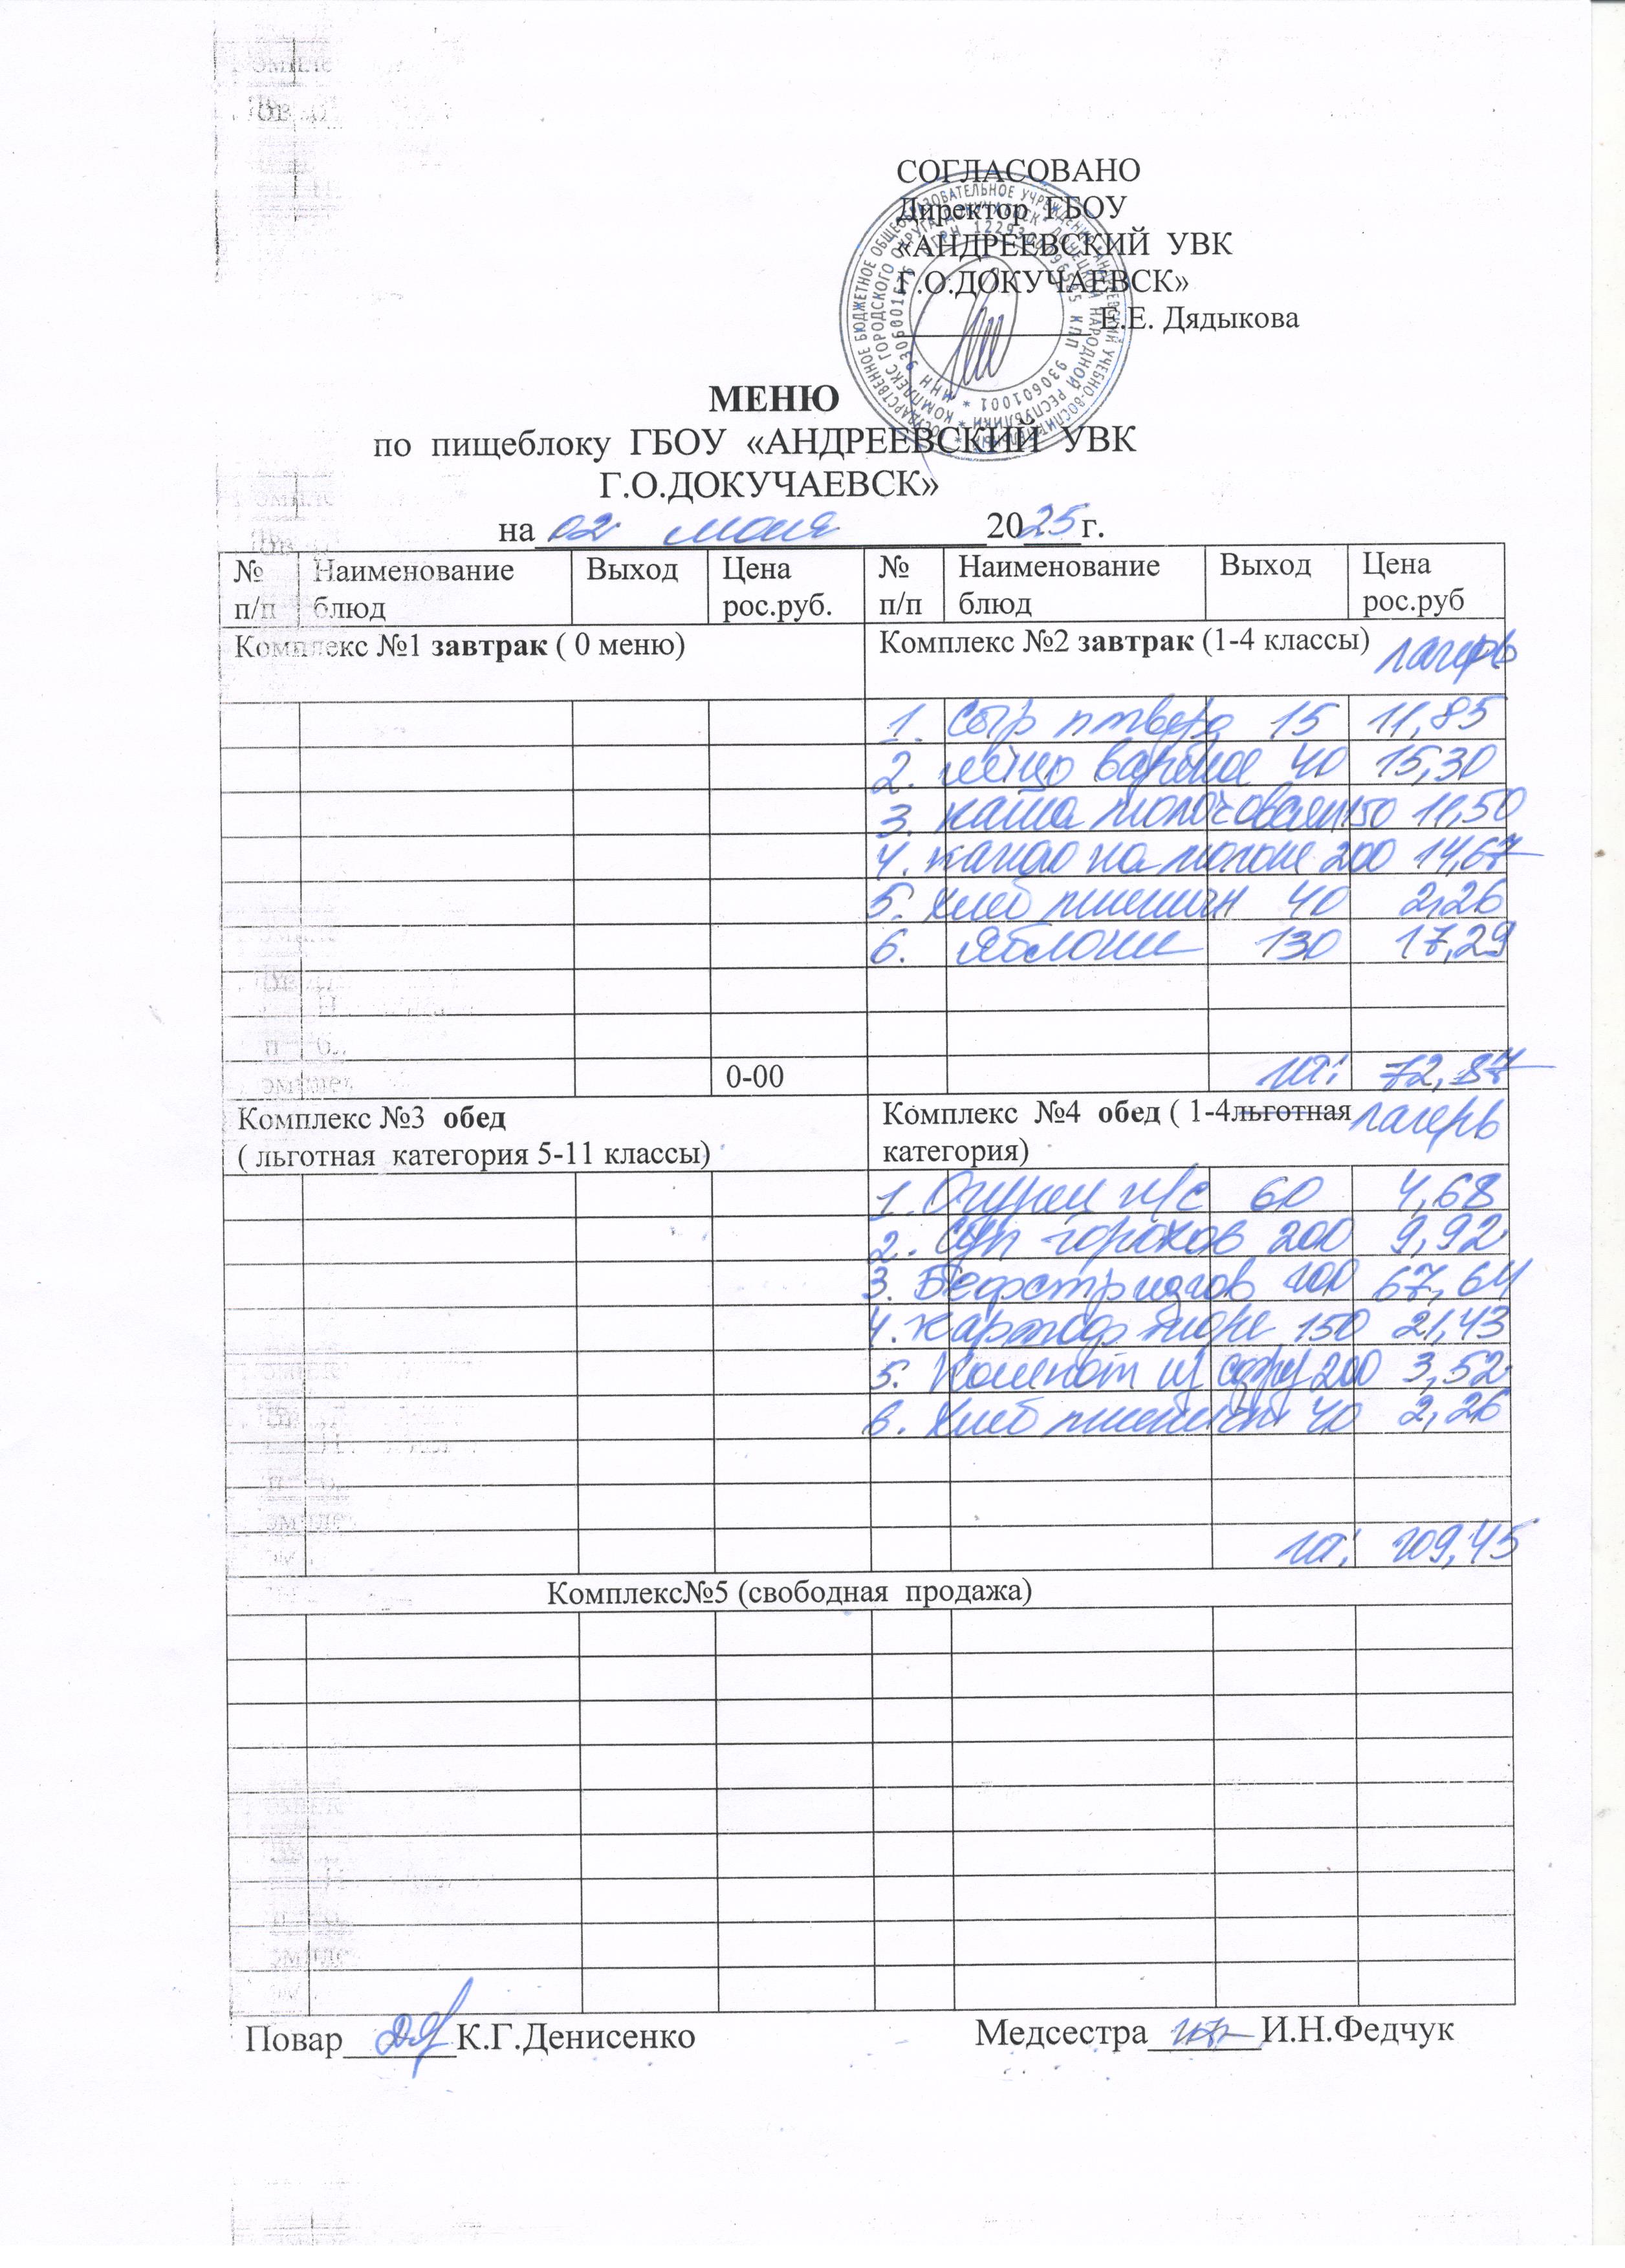 СОГЛАСОВАНО
Директор ГБОУ
«АНДРЕЕВСКИЙ УВК
Г.О.ДОКУЧАЕВСК»
___________ Е.Е. Дядыкова
МЕНЮ
по пищеблоку ГБОУ «АНДРЕЕВСКИЙ УВК
Г.О.ДОКУЧАЕВСК»
на 02 мая 2025 г.
№ п/п Наименование блюд Выход Цена рос.руб. № п/п Наименование блюд Выход Цена рос.руб
Комплекс №1 завтрак ( 0 меню) Комплекс №2 завтрак (1-4 классы) лагерь
1. Сыр п тверд 15 11,85
2. яйцо варёное 40 15,30
3. каша молочная 150 11,50
4. какао на молоке 200 14,67
5. хлеб пшеничн 40 2,26
6. яблоки 130 17,29
0-00 72,87
Комплекс №3 обед Комплекс №4 обед ( 1-4льготная лагерь
( льготная категория 5-11 классы) категория)
1. Огурец п/с 60 4,68
2. Суп горохов 200 9,92
3. Бефстроганов 100 67,64
4. картоф пюре 150 21,43
5. Компот из сухоф 200 3,52
6. хлеб пшеничн 40 2,26
109,45
Комплекс№5 (свободная продажа)
Повар______К.Г.Денисенко Медсестра______И.Н.Федчук